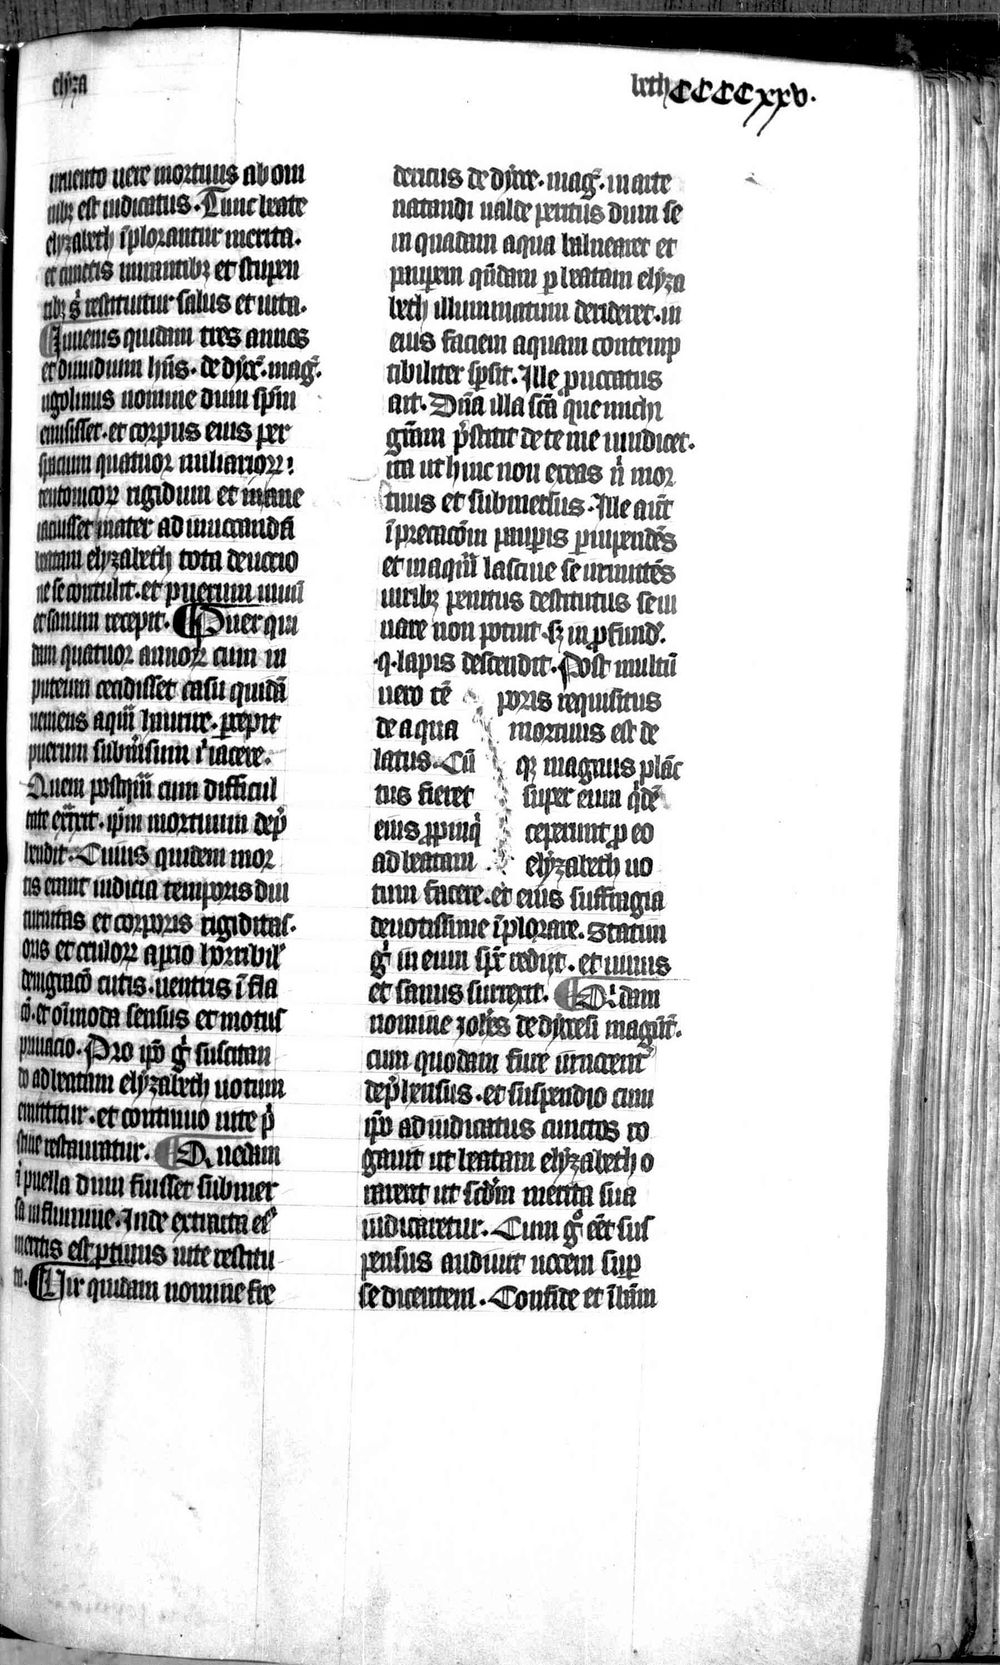 elyza
beth CCCCxxv.
inuento uere mortuus ab om
nibꝫ est iudicatus. Tunc beate
elyzabeth īplorantur merita.
et cunctis mirantibꝫ et stupen
tibꝫ restituitur salus et uita.
Iuuenis quidam tres annos
et dimidium hn̄s. de dyoc̄. maḡ.
ugolinus nomine dum sp̄m
emisisset. et corpus eius per
spacium quatuor miliarioꝝ
teutonicoꝝ rigidum et inane
iacuisset mater ad inuocandā
beatam elyzabeth tota deuocio
ne se contulit. et puerum uiuū
et sanum recepit. Puer qui
dam quatuor annoꝝ cum in
puteum cecidisset casu quidā
ueniens aquā haurire. ꝑcepit
puerum submersum ī iacere.
Quem postqm̄ cum difficul
tate ext̄xit. ip̄m mortuum dep̄
hendit. Cuius quidem mor
tis erant iudicia temporis diu
turnitas et corporis rigiditas.
oris et oculoꝝ aꝑcio horribil'
denigracō cutis. uentris īfla
cō. et oīmoda sensus et motus
priuacio. Pro ip̄o g̊ suscitan
do ad beatam elyzabeth uotum
emittitur. et continuo uite p̄
stine restauratur. Quedam
ī puella dum fuisset submer
sa in flumine. Inde extracta ei'
meritis est ꝓtinus uite restitu
ta. Vir quidam nomine fre
dericus de dyoce. maḡ. in arte
natandi ualde peritus dum se
in quadam aqua balnearet et
pauꝑem qūdam ꝑ beatam elyza
beth illuminatum derideret. in
eius faciem aquam contemp
tibiliter spsit. Ille ꝓuocatus
ait. Dn̄a illa scā que michi
grām p̄stitit de te me uindicet.
ita ut hinc non exeas n̄ mor
tuus et submersus. Ille aūt
īprecacōm pauꝑis ꝑuipendēs
et in aquā lasciue se īmittēs
uiribꝫ penitus destitutus se iu
uare non potuit. sꝫ in ꝓfund'.
.q. lapis descendit. Post multū
uero tē poris requisitus
de aqua mortuus est de
latus. Cū qꝫ magnus plāc
tus fieret super eum q̄dē
eius ꝓpinq̄ ceperunt ꝓ eo
ad beatam elyzabeth uo
tum facere. et eius suffragia
deuotissime īplorare. Statim
g̊ in eum sp̄c rediit. et uiuus
et sanus surrexit. Qidam
nomine zolr̄is de dyocesi magūt̄.
cum quodam fure īnocent'
dep̄hensus. et suspendio cum
ip̄o adiudicatus cunctos ro
gauit ut beatam elyzabeth o
rarent ut scd̄m merita sua
iudicaretur. Cum g̊ eēt sus
pensus audiuit uocem suꝑ
se dicentem. Confide et ī bēām